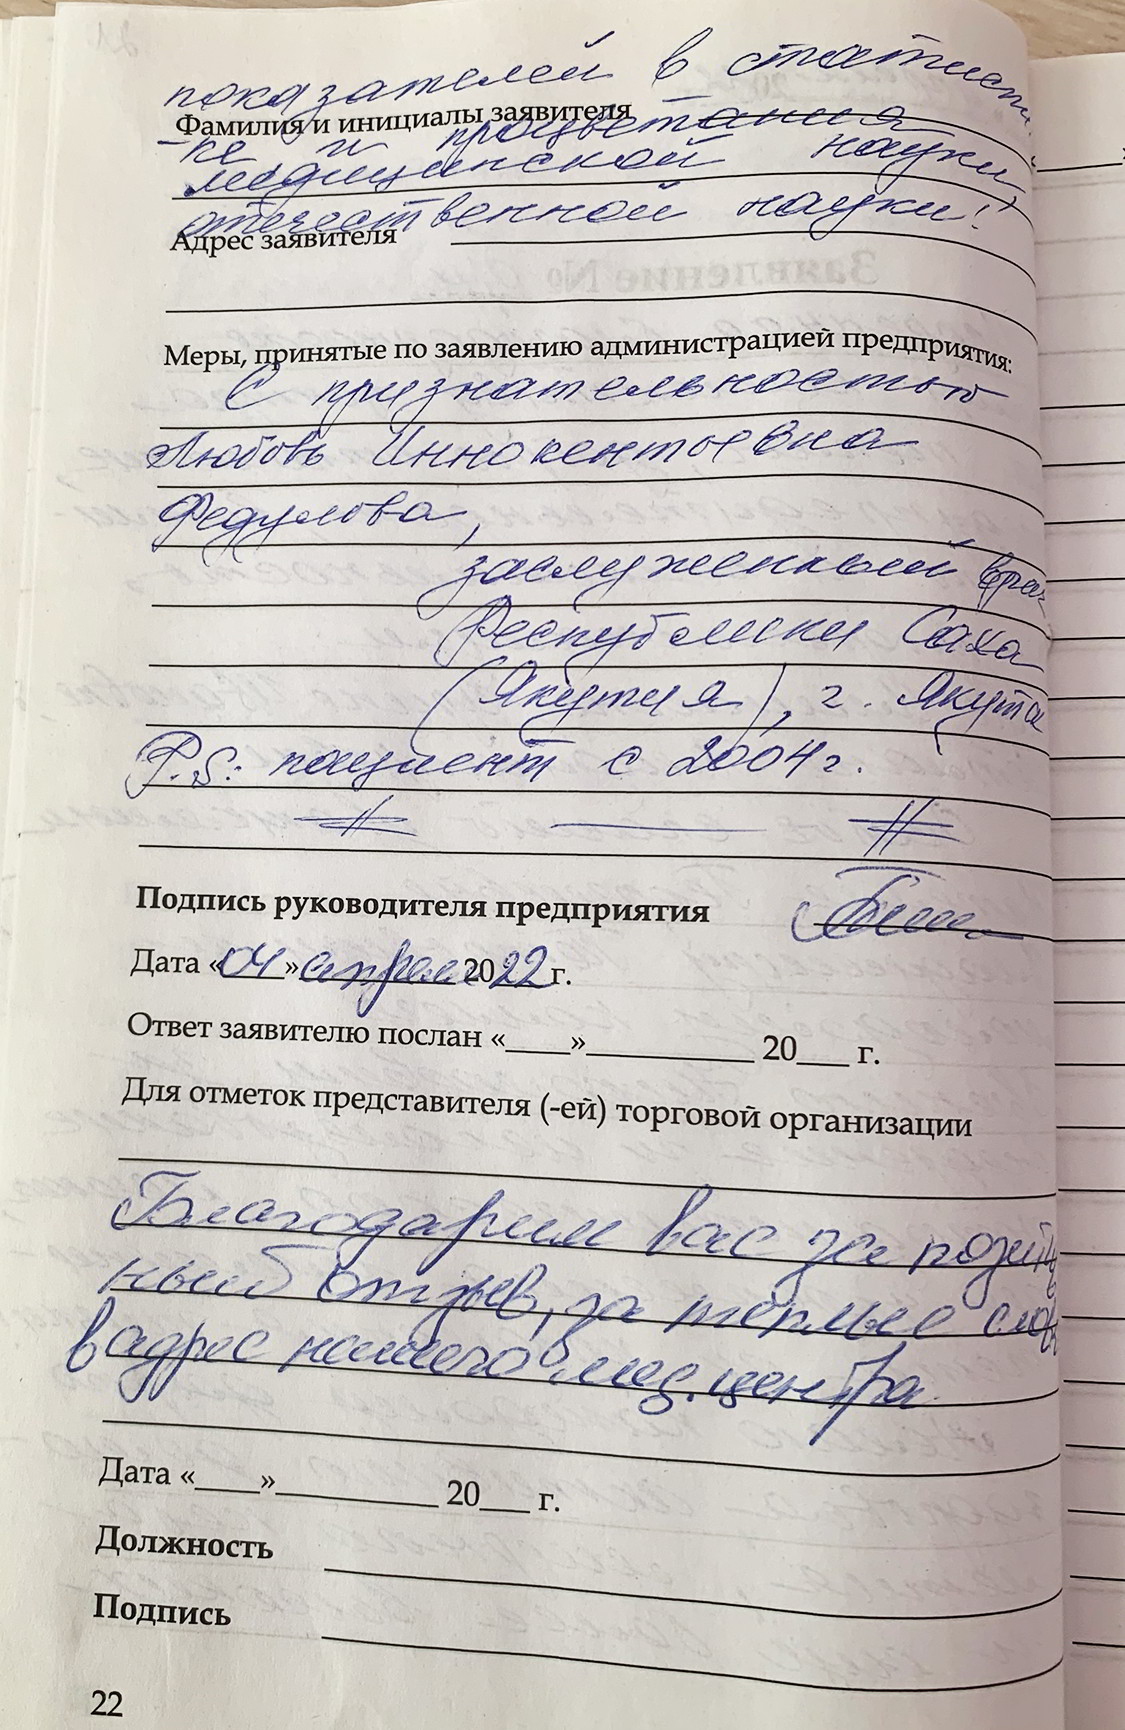 показателей в статисти
Фамилия и инициалы заявителя
-ке и процветания
медицинской науки,
отечественной науки!
Адрес заявителя
Меры, принятые по заявлению администрацией предприятия:
С признательностью
Любовь Иннокентьевна
Федулова,
заслуженный врач
Республики Саха
(Якутия), г. Якутск
P.S: пациент с 2004 г.
Подпись руководителя предприятия
Дата «04» апреля 2022 г.
Ответ заявителю послан «____»__________ 20___ г.
Для отметок представителя (-ей) торговой организации
Благодарим вас за позитив
ный отзыв, за теплые слова
в адрес нашего мед. центра.
Дата «____»__________ 20___ г.
Должность
Подпись
22